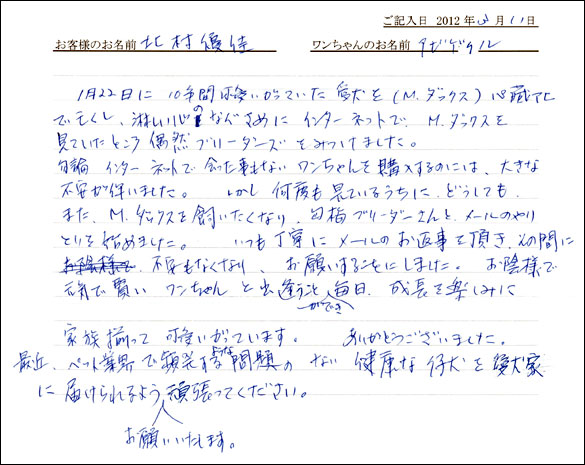 ご記入日 2012年3月11日
お客様のお名前 北村優佳 ワンちゃんのお名前
1月22日に 10年間可愛いがっていた 愛犬を(M.ダックス)心臓
で亡くし、淋しい心のなぐさめに インターネットで、M.ダックスを
見ていたところ 偶然 ブリーダーズ をみつけました。
勿論 インターネットで 会った事もない ワンちゃんを購入するのには、大きな
不安が伴いました。 しかし 何度も見ているうちに、どうしても、
また、M.ダックスを飼いたくなり、 ブリーダーさんと、メールのやり
とりを始めました。 いつも丁寧に メールの お返事を頂き、その間に
不安もなくなり、 お願いすることにしました。 お陰様で
元気で賢い ワンちゃん と出逢うことができ 毎日、成長を楽しみに
家族揃って 可愛いがっています。 ありがとうございました。
最近、ペット業界で頻発するような問題の ない 健康な仔犬を愛犬家
に届けられるよう お願いいたします。頑張ってください。